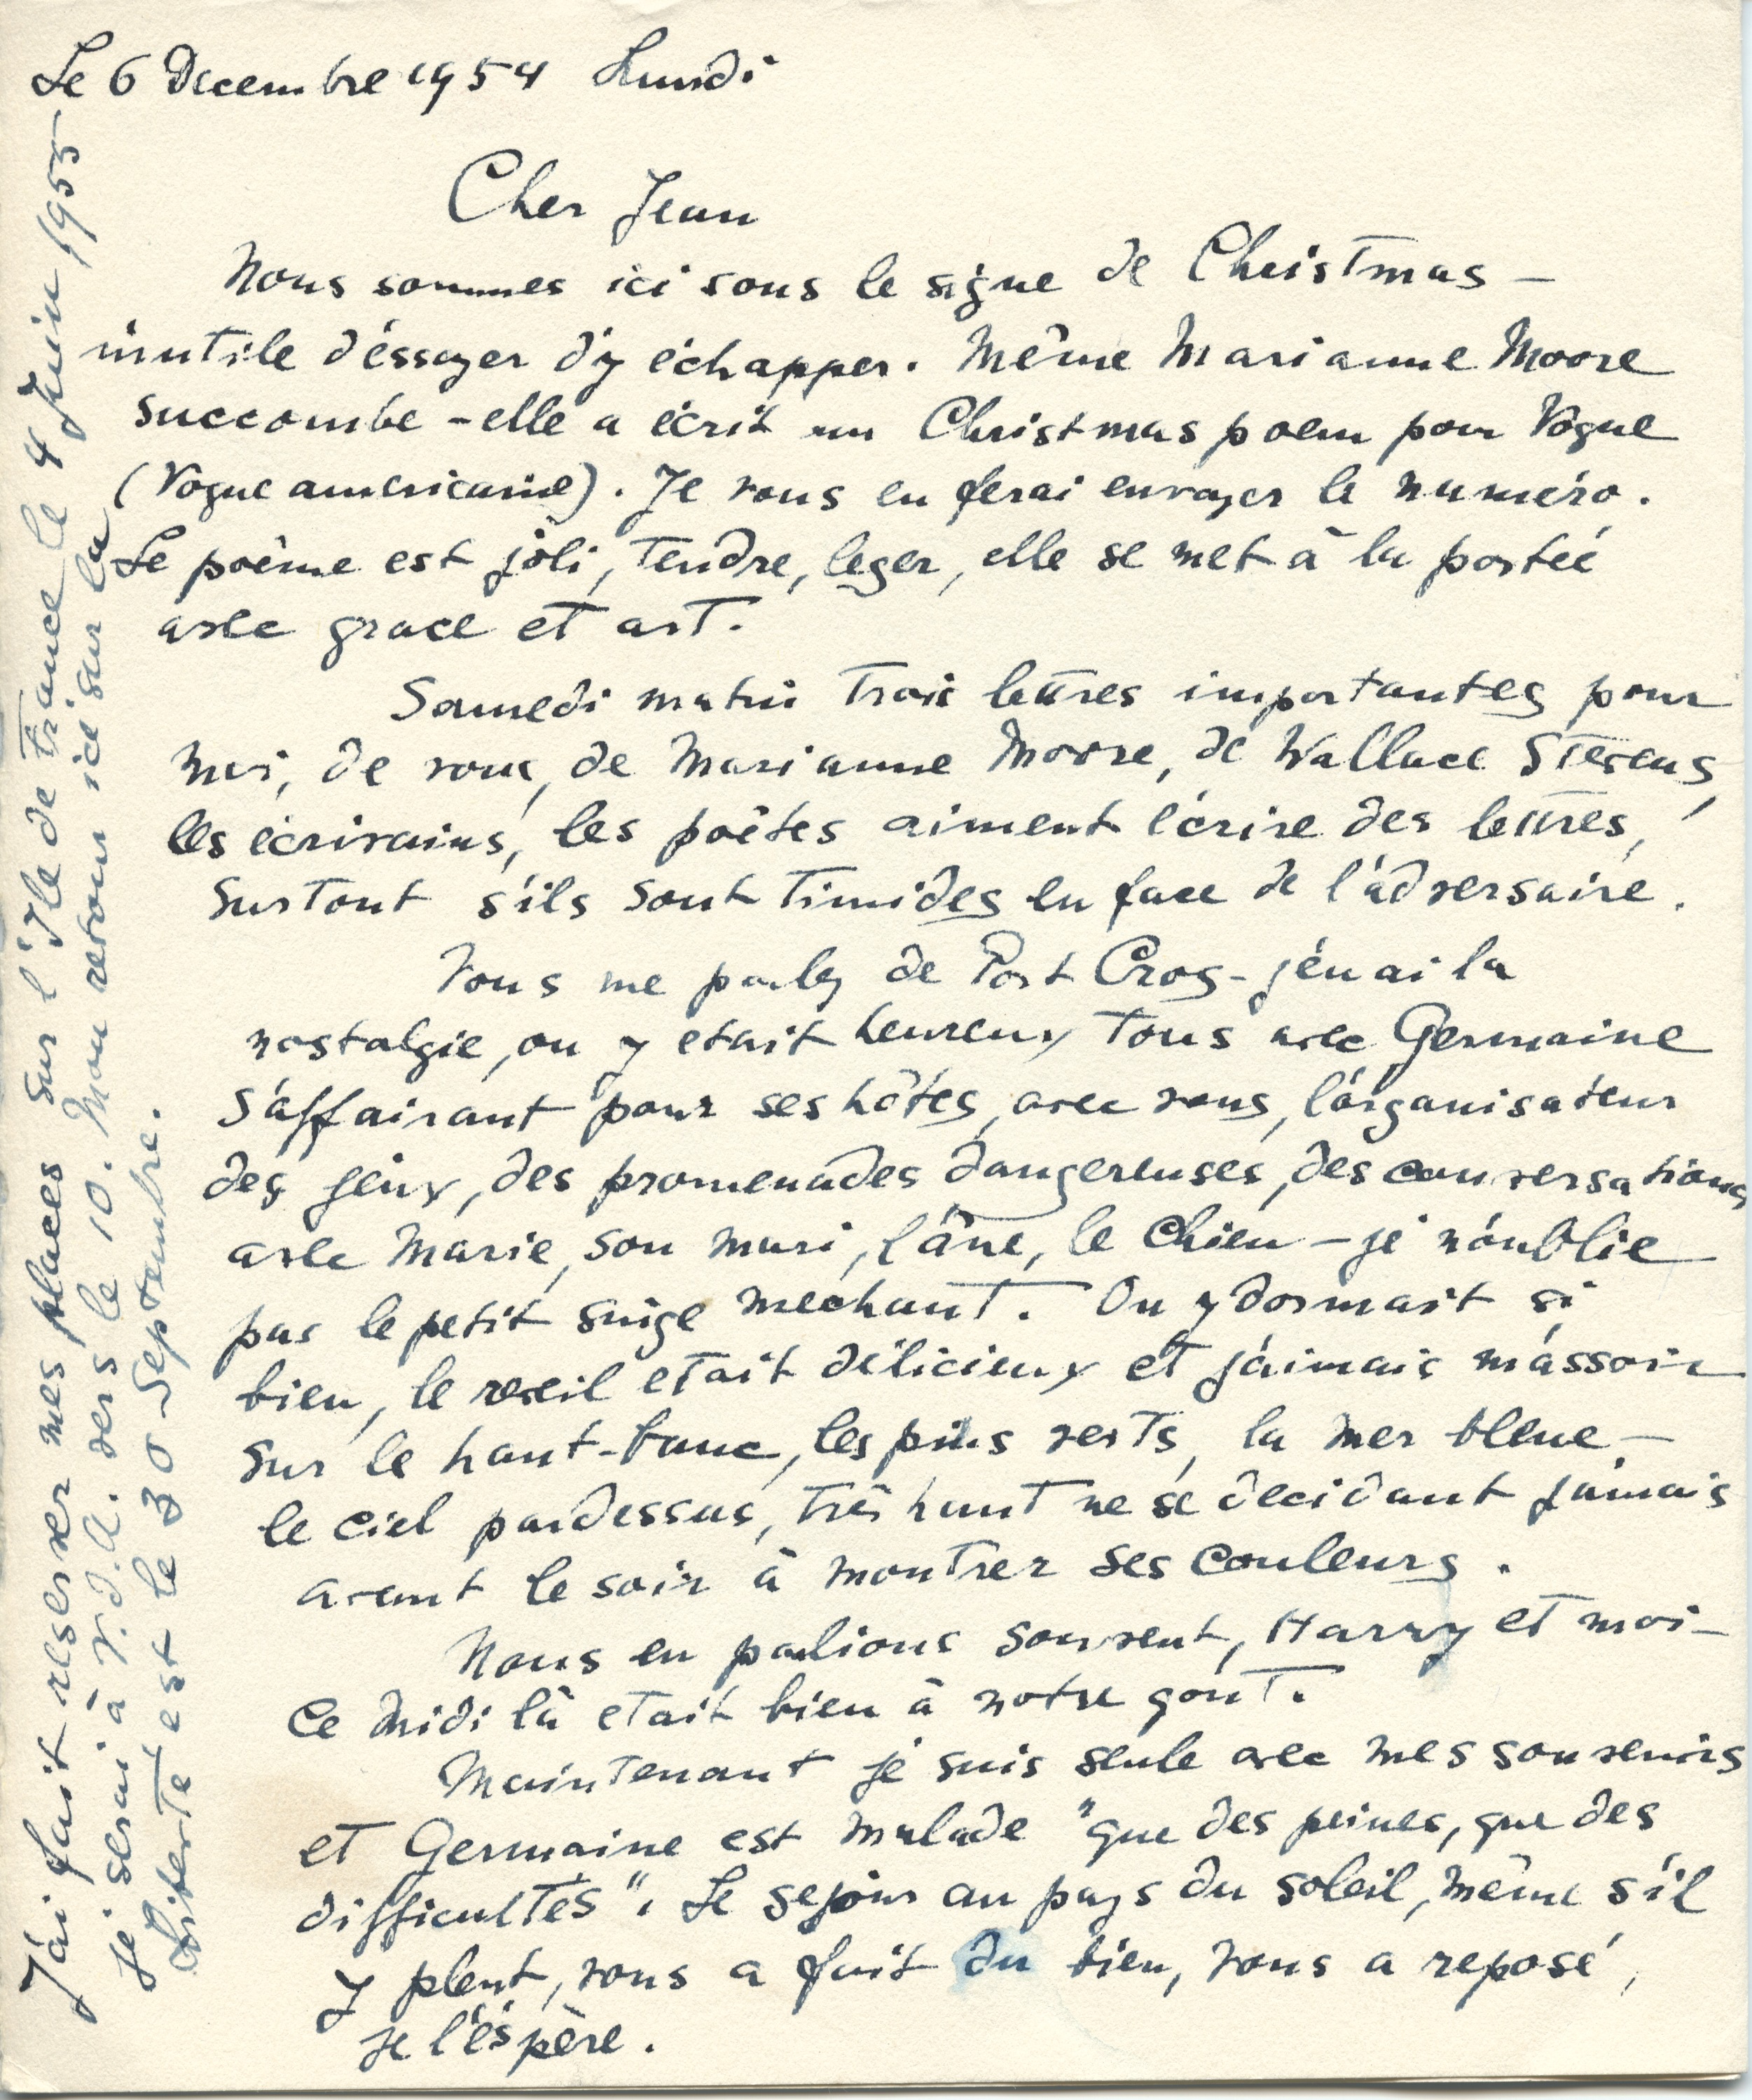 Le 6 Decembre 1954 Lundi
Cher Jean
Nous sommes ici sous le signe de Christmas –
inutile d'éssayer d'y échapper. Même Marianne Moore
succombe – elle a écrit un Christmas poem pour Vogue
(Vogue americaine). Je vous en ferai envoyer le numéro.
Le poème est joli, tendre, leger, elle se met à la portée
avec grace et art.
Samedi matin trois lettres importantes pour
moi, de vous, de Marianne Moore, de Wallace Stevens,
les écrivains, les poètes aiment écrire des lettres,
surtout s'ils sont timides en face de l'adversaire.
Vous me parlez de Port Cros – j'en ai la
nostalgie, on y etait heureux tous avec Germaine
s'affairant pour ses hôtes, avec vous, l'organisateur
des jeux, des promenades dangereuses, des conversations
avec Marie, son mari, l'âne, le chien – je n'oublie
pas le petit singe mechant. On y dormait si
bien, le reveil etait délicieux et j'aimais m'assoir
sur le haut-banc, les pins verts, la mer bleue –
le ciel pardessus, très haut ne se decidant jamais
avant le soir à montrer ses couleurs.
Nous en parlions souvent, Harry et moi –
ce midi là etait bien à notre goût.
Maintenant je suis seule avec mes souvenirs
et Germaine est malade "que des peines, que des
difficultés". Le sejour au pays du soleil, même s'il
y pleut, vous a fait du bien, vous a reposé,
je l'éspère.
J'ai fait reserver mes places sur l'Ile de France le 4 Juin 1955
je serai à V.d.A. vers le 10. Mon retour ici sur la
Liberté est le 30 Septembre.